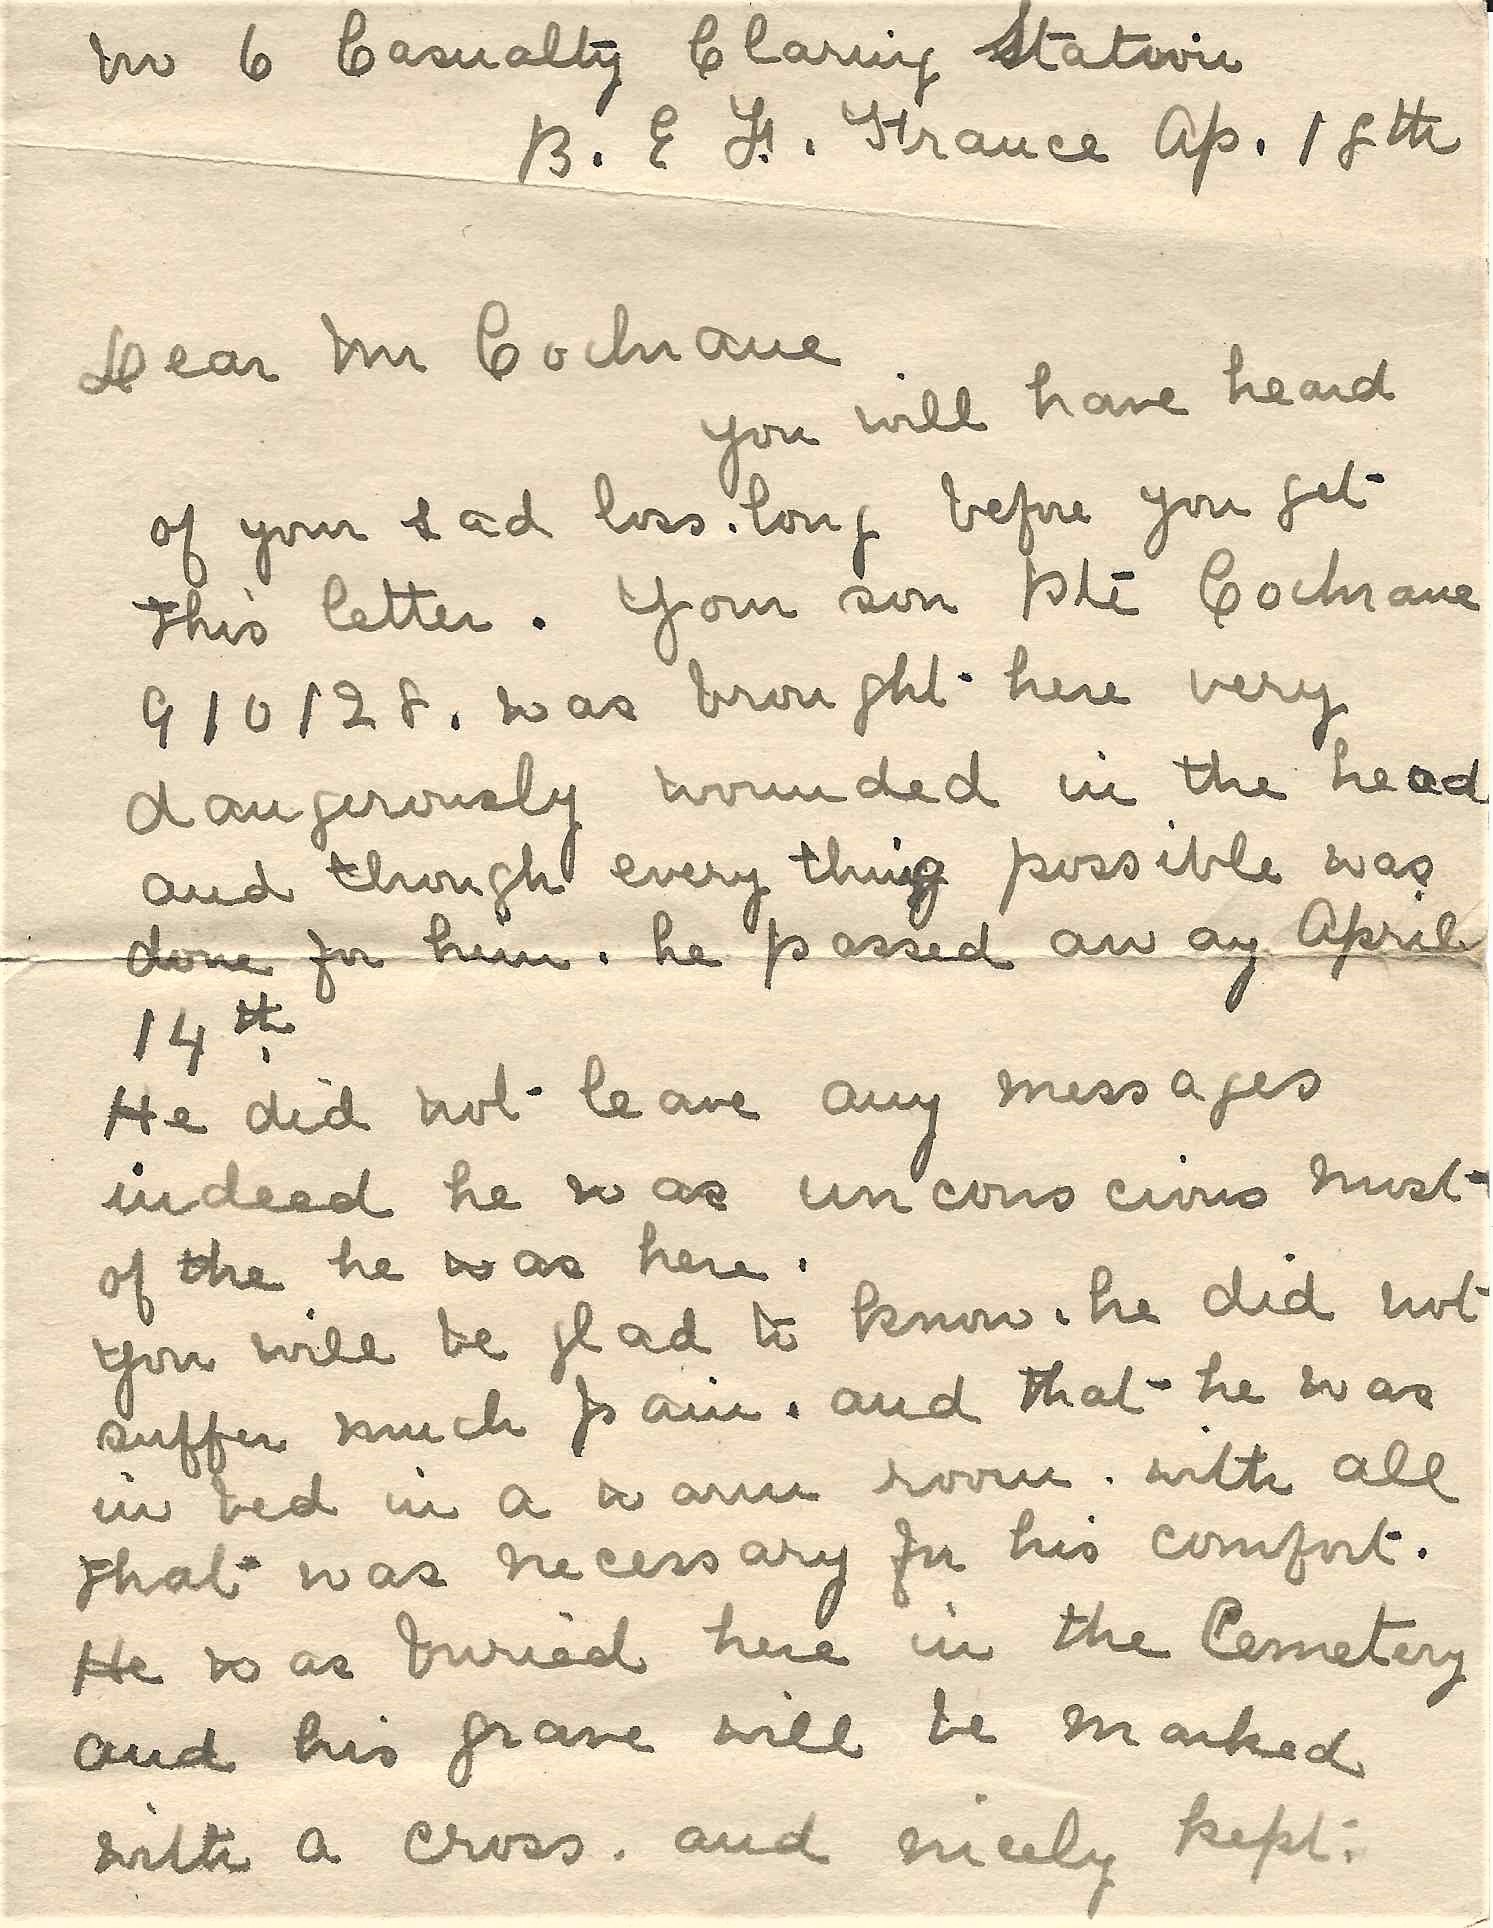 No 6 Casualty Claring Station
B. E F. France Ap. 18th
Dear Mr Cochrane
you will have heard
of your sad loss. long before you get
this letter. Your son Pte Cochrane
910128. was brought here very
dangerously wounded in the head
and though every thing possible was
done for him. he passed away April
14th.
He did not leave any messages
indeed he was unconscious most
of the he was here.
you will be glad to know. he did not
suffer much pain. and that he was
in bed in a warm room. with all
that was necessary for his comfort.
He was buried here in the Cemetery
and his grave will be marked
with a cross. and nicely kept.